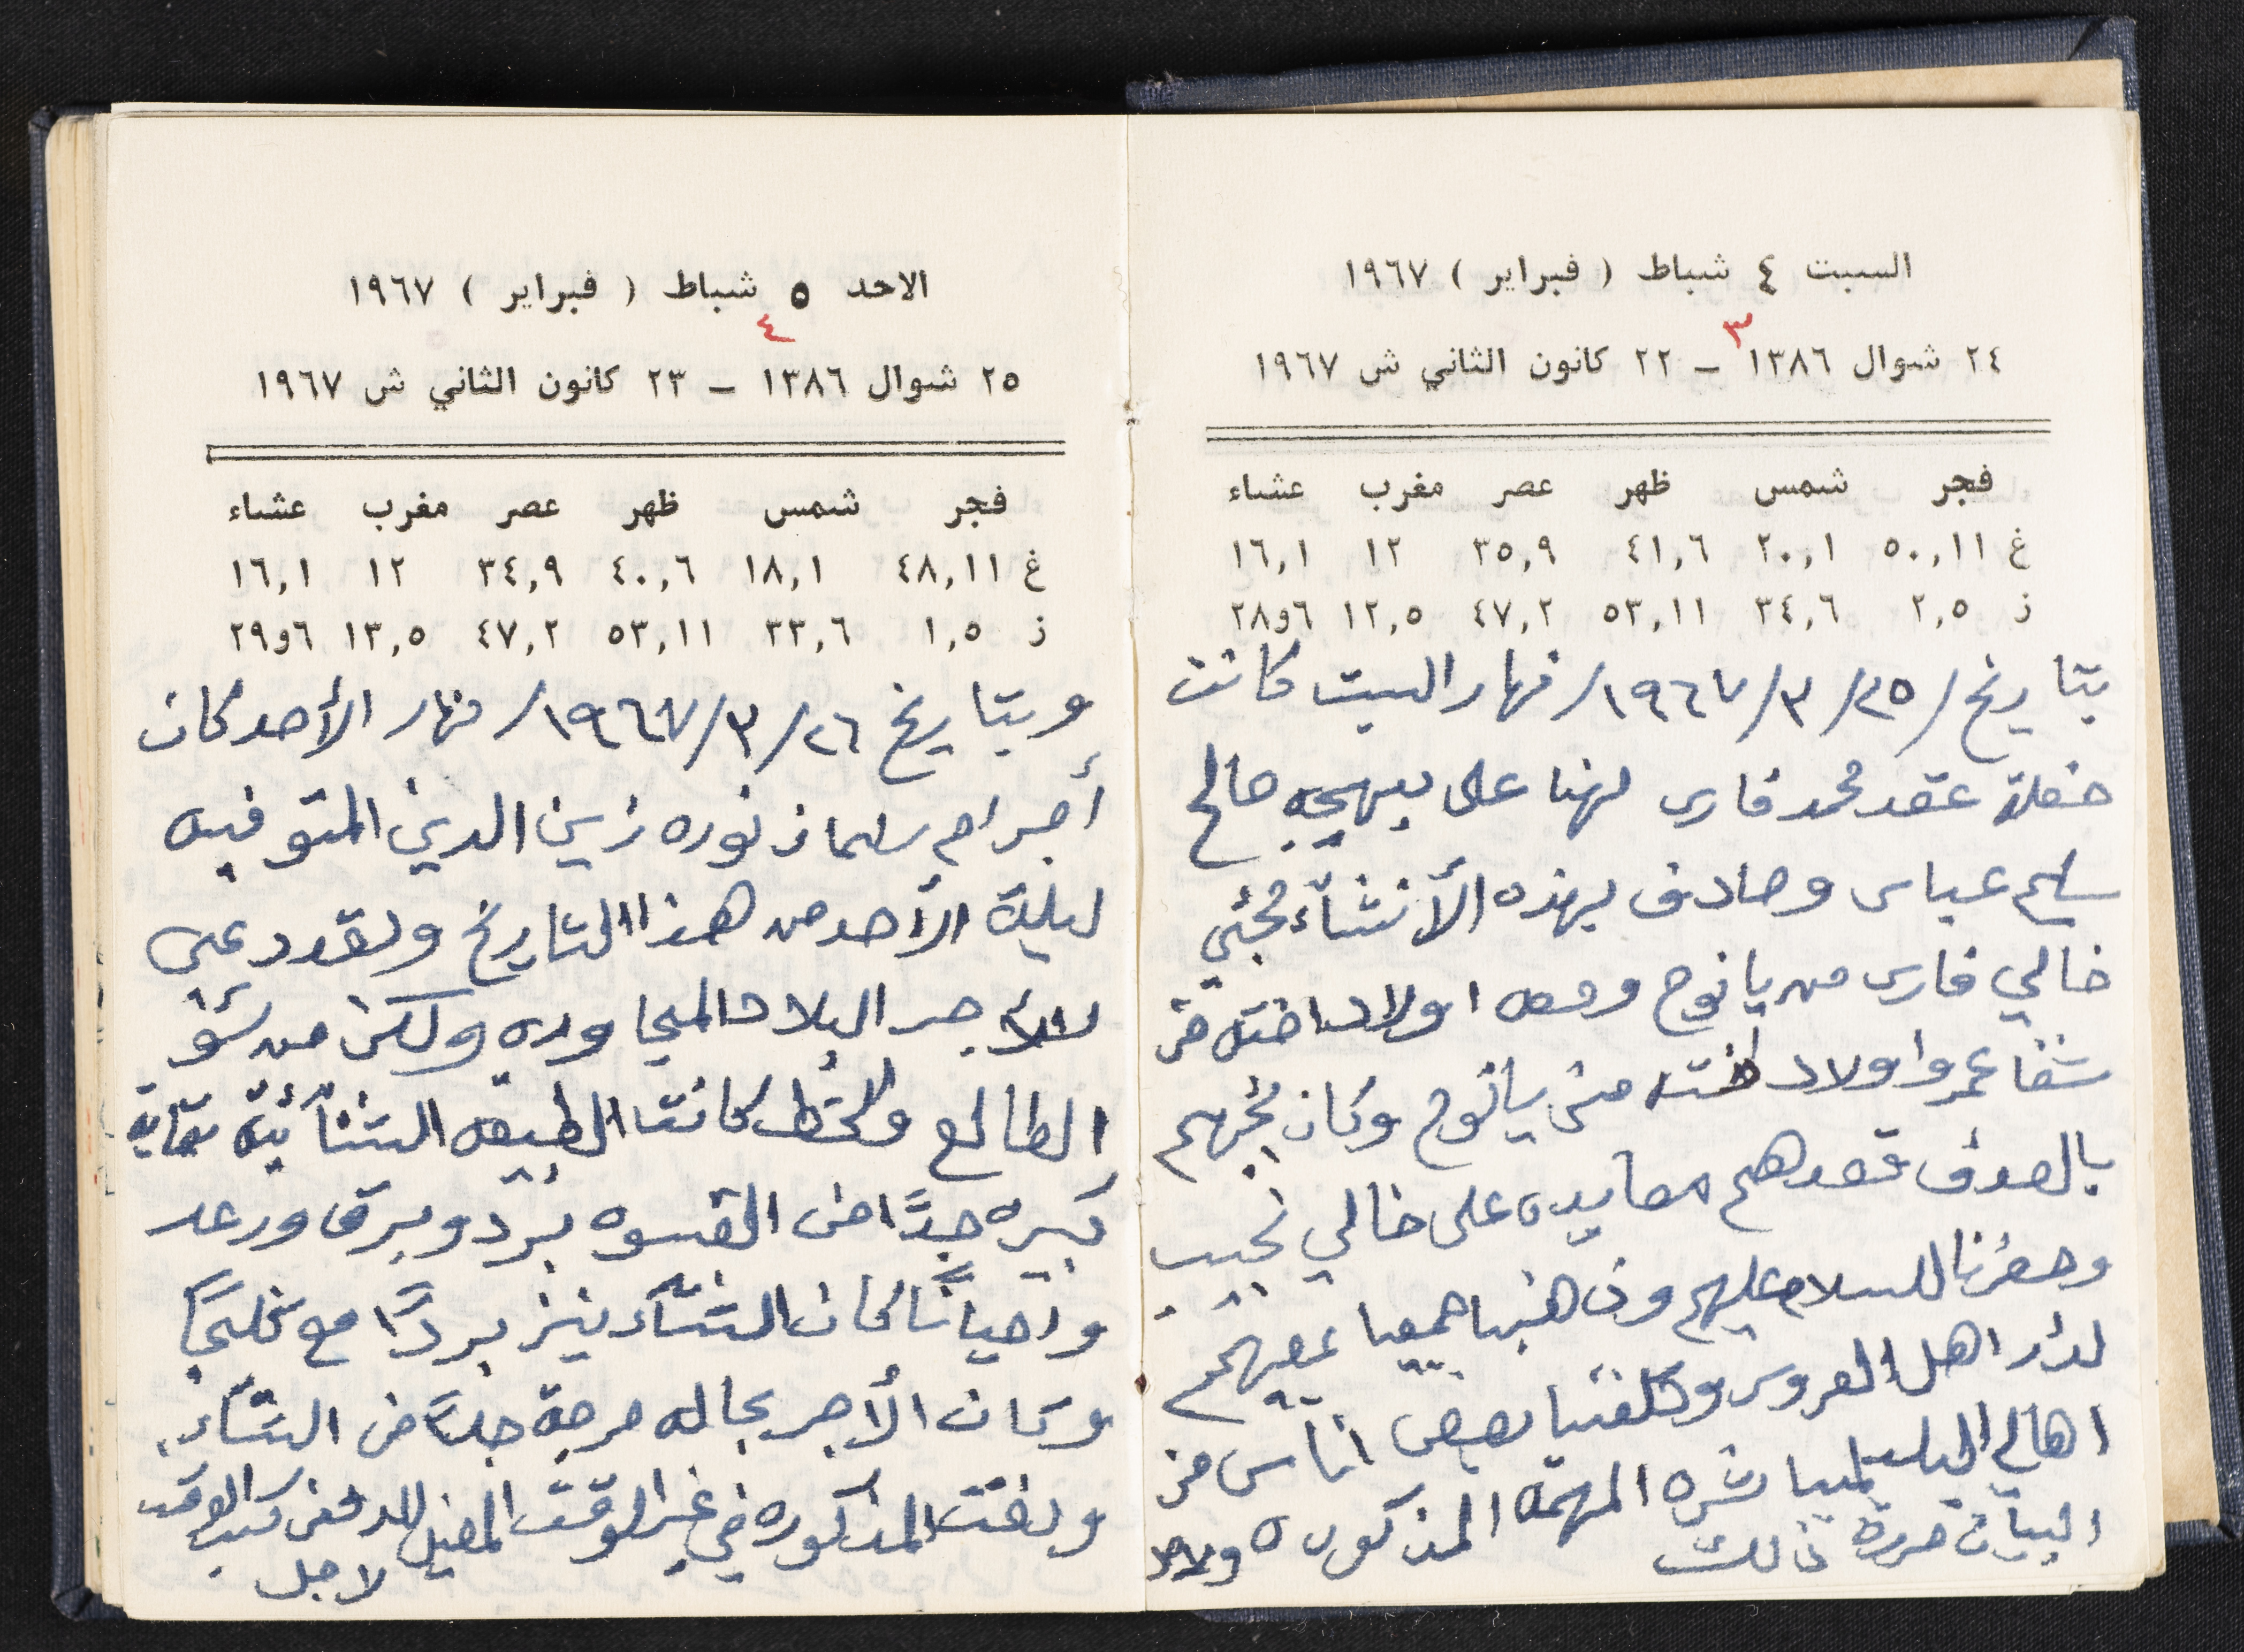 السبت ٤ شباط ( فبراير ) ١٩٦٧
٣
٢٤ شوال ١٣٨٦ – ٢٢ كانون الثاني ش ١٩٦٧
فجر شمس ظهر عصر مغرب عشاء
غ ٥٠,١١ ٢٠,١ ٤١,٦ ٣٥,٩ ١٢ ١٦,١
ز ٢,٥ ٣٤,٦ ٥٣,١١ ٤٧,٢ ١٢,٥ ٦و٢٨
بتاريخ /٢٥/٣/١٩٦٧/ نهار السبت كانت
حفلة عقد محمد فارس لهنا على بهيجه صالح
سليم عباس وصادف بهذه الأنشآء مجئي
خالي فارس من يانوح ومعه اولاد اخته من
شفاعمرو اولاد اخته من يانوح وكان مجيهم
بالصدف قصدهم معايده على خالي نجيب
وحضرنا للسلام عليهم وذهبنا جميعا بمعيتهم
لدار اهل العروس وكلفنا بعض اناس من
اهالي البلد لمباشرة المهمه المذكوره ولاجل
البيان حررة ذالك
الاحد ٥ شباط ( فبراير ) ١٩٦٧
٤
٢٥ شوال ١٣٨٦ – ٢٣ كانون الثاني ش ١٩٦٧
فجر شمس ظهر عصر مغرب عشاء
غ ٤٨,١١ ١٨,١ ٤٠,٦ ٣٤,٩ ١٢ ١٦,١
ز ١,٥ ٣٣,٦ ٥٣,١١ ٤٧,٢ ١٣,٥ ٦و٢٩
وبتاريخ ٢٦/٣/١٩٦٧/ نهار الأحد كان
أجر ام سلمان نوره زين الدين المتوفيه
ليلة الأحد من هذا التاريخ ولقد دعي
للأجر البلاد المجاوره ولكن من سؤ
الطالع والحظ كانت الطبيعه الشتآئية بغاية
كبيره جدًا من القسوه برد وبرق ورعد
واحيانًا كان الشتآء ينزل بردًا مع ثلجًا
وكان الأجر بحاله حرجة جدًا من الشتآء
ودفنت المذكوره في غير الوقت المعين للدفن كسب الوقت
لاجل